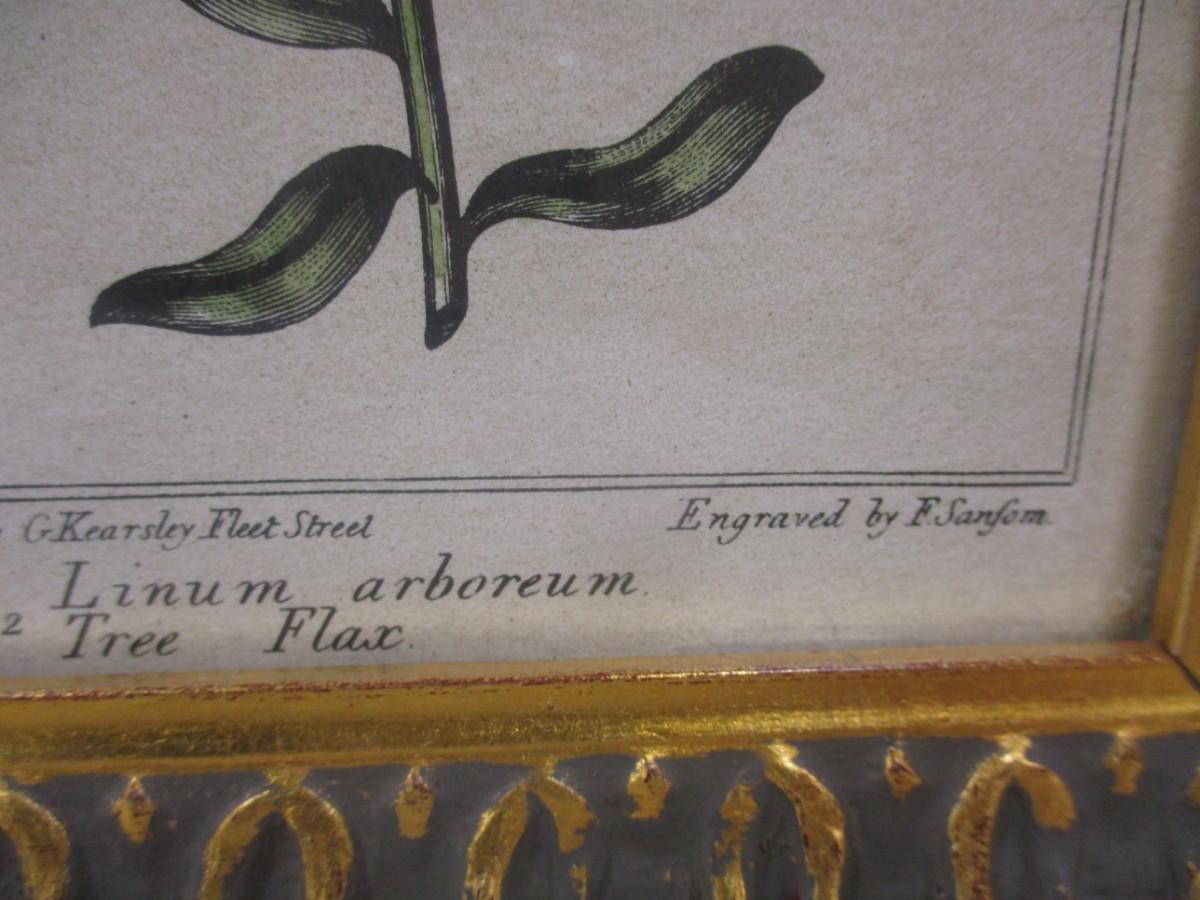 G Kearsley Fleet Street
Engraved by F. Sanſom.
Linum arboreum.
2 Tree Flax.